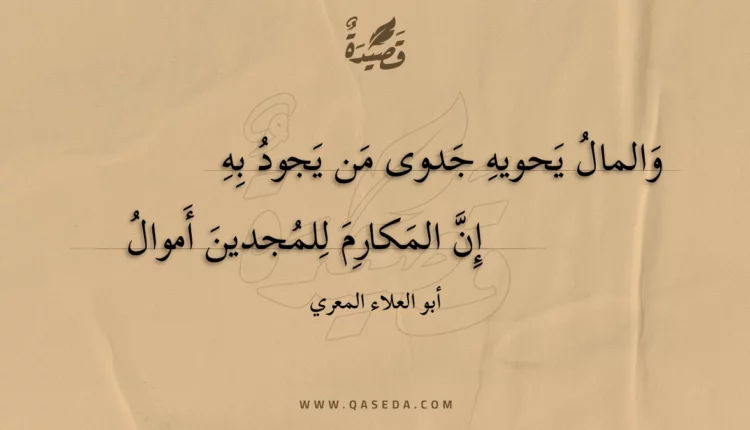 قَصِيْدَةٌ
وَالمالُ يَحويهِ جَدوى مَن يَجودُ بِهِ
إِنَّ المَكارِمَ لِلمُجدينَ أَموالُ
أبو العلاء المعري
WWW.QASEDA.COM